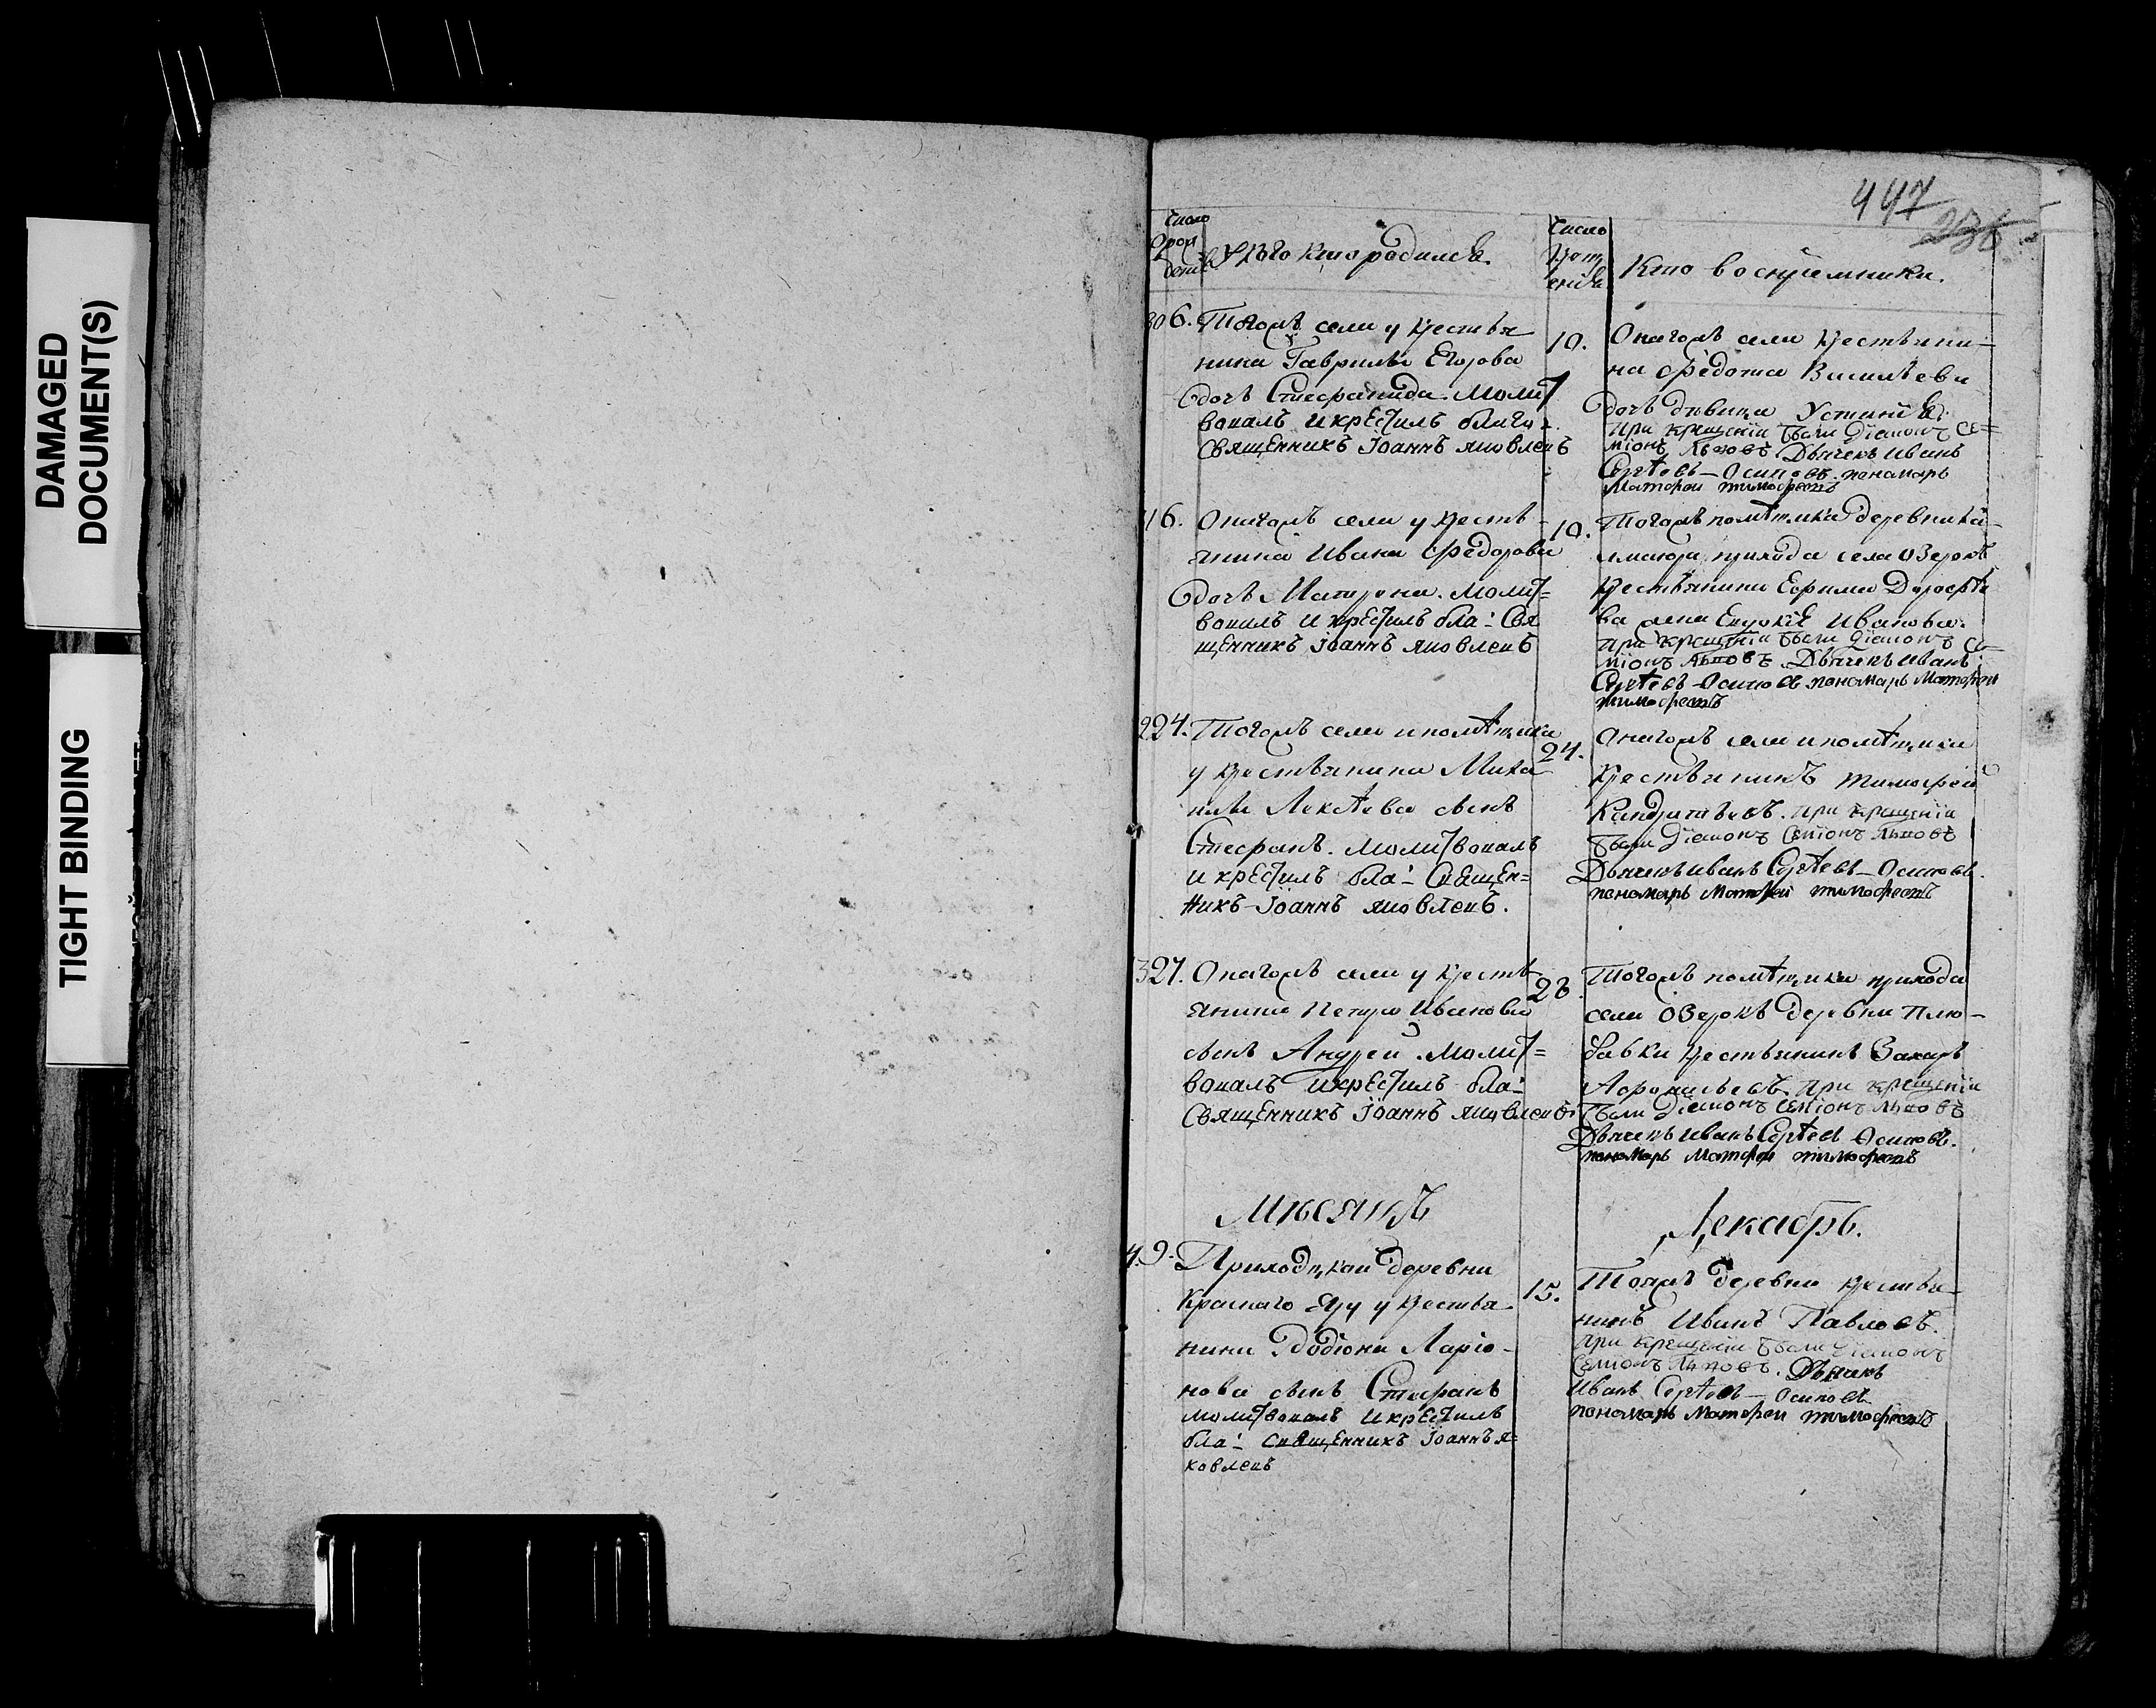 DAMAGED
DOCUMENT(S)
TIGHT BINDING
447
236
Число
рож
дения
У кого кто родился.
Число
крещ
ения
Кто воспріемники.
306. Тогожъ села у крестья
нина Гаврилы Егорова
дочь Стефанида. Молит
вовалъ и крестилъ благо:
священникъ Іоаннъ яковлевъ
10. Онагожъ села крестьяни-
на Федота Василѣева
дочь девица Устинія.
при крещеніи были діаконъ се=
міонъ львовъ Дьячекъ иванъ
Сергѣевъ-Осиповъ. пономарь
Матфеи тимофеевъ
16. Онагожъ села у кресть-
янина Ивана Федорова
дочь Матрона. молит=
вовалъ и крестилъ бла: Свя
щенникъ іоаннъ яковлевъ
10. Тогожъ помѣщика деревни ка-
прихода села озерокъ
крестьянина Ефрима Дорофѣе
ва жена Евдокіе Иванова.
при крещеніи были діаконъ се-
міонъ львовъ. Дьячекъ иванъ
Сергѣевъ-Осиповъ пономарь Матфеи
тимофеевъ
224. Тогожъ села и помѣщика
у крестьянина Миха
илы Лексѣева сынъ
Стефанъ. молитвовалъ
и крестилъ бла: Священ=
никъ-Іоаннъ яковлевъ.
24. Онагожъ села и помѣщика
крестьянинъ тимофей
Кандратьевъ. при крещеніи
были діаконъ Семіонъ львовъ
Дьячекъ иванъ Сергѣевъ-Осиповъ.
пономарь Матфей тимофеевъ
327. Онагожъ села у кресть
янина Петра Иванова
сынъ Андреи. молит=
вовалъ и крестилъ бла:
Священникъ Іоаннъ яковлевъ
28. Тогожъ помѣщика прихода
села озерокъ деревни Плю-
бавки крестьянинъ Захаръ
Афонасьевъ. при крещеніи
были діаконъ Семіонъ львовъ
Дьячекъ иванъ Сергѣевъ Осиповъ.
пономарь Матфеи тимофеевъ
Мѣсяцъ
Декабрь.
4. 9. Приходцкаи деревни
Краснаго Яру у крестья-
нина Родіона Ларіо-
нова сынъ Стефанъ
молитвовалъ и крестилъ
бла: священникъ Іоаннъ я=
ковлевъ
15. Тояжъ деревни крестья-
нинъ Иванъ Павловъ.
при крещеніи были діаконъ
Семіонъ львовъ. Дьячекъ
иванъ Сергѣевъ-Осиповъ
пономарь Матфеи тимофеевъ